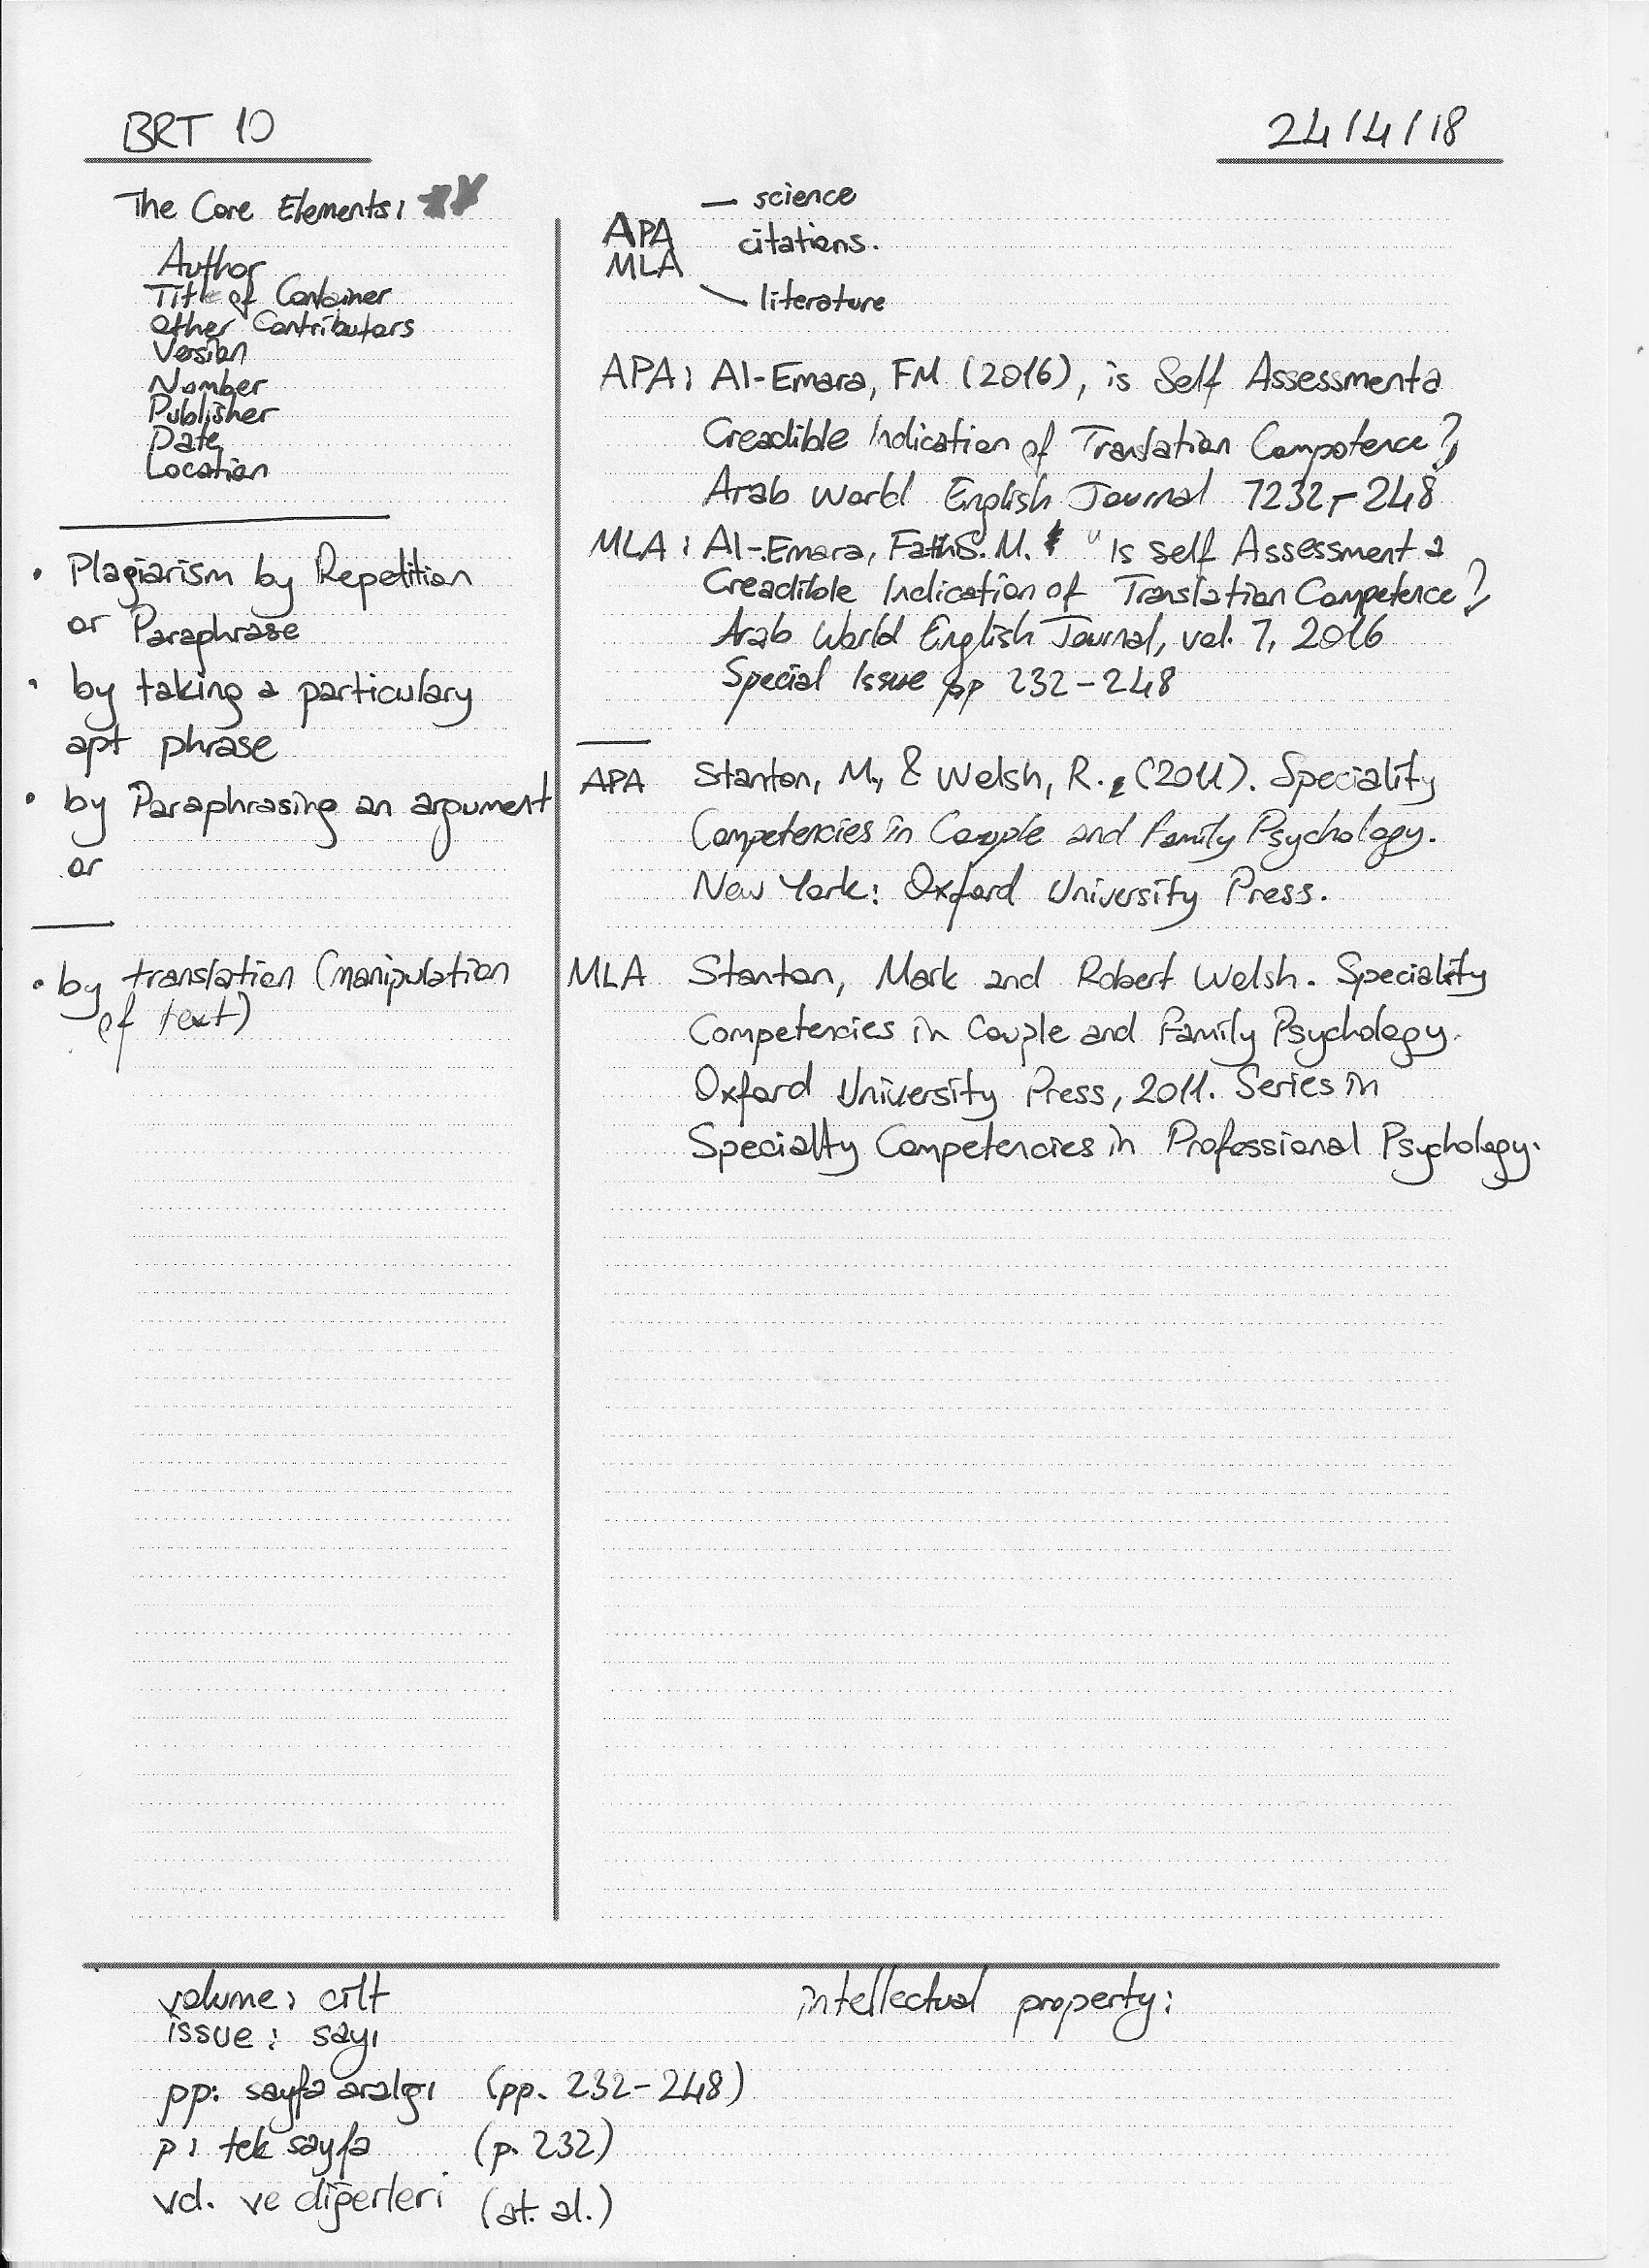 BRT 10
24/4/18
The Core Elements:
Author
Title of Container
Other Contributors
Version
Number
Publisher
Date
Location
• Plagiarism by Repetition
or Paraphrase
• by taking a particulary
apt phrase
• by Paraphrasing an argument
or
• by translation (manipulation
of text)
— science
APA
citations.
MLA
literature
APA: Al-Emara, FM (2016), is Self Assessmenta
Creadible Indication of Translation Competence?,
Arab World English Journal 7232-248
MLA: Al-Emara, S. M. "Is self Assessment a
Creadible Indication of Translation Competence?
Arab World English Journal, vol. 7, 2016
Special Issue pp 232-248
APA Stanton, M., & Welsh, R., (2011). Speciality
Competencies in Couple and Family Psychology.
New York: Oxford University Press.
MLA Stanton, Mark and Robert Welsh. Speciality
Competencies in Couple and Family Psychology.
Oxford University Press, 2011. Series in
Specialty Competencies in Professional Psychology.
volume: cilt
issue: sayı
pp: sayfa aralgı (pp. 232-248)
p: tek sayfa (p. 232)
vd. ve diğerleri (at. al.)
intellectual property: